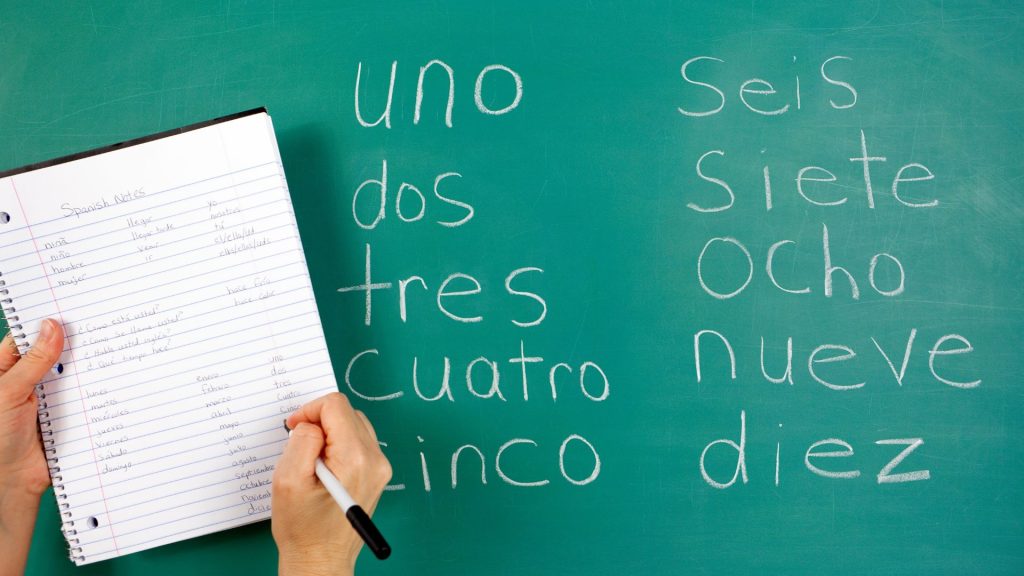 uno
dos
tres
cuatro
cinco
seis
siete
ocho
nueve
diez
Spanish Notes
niña
niño
hombre
mujer
llegar
llegar tarde
venir
ir
yo
nosotros
tú
él/ella/ud
ellos/ellas/uds
¿Como está usted?
¿Como se llama usted?
¿Habla usted inglés?
¿Qué tiempo hace?
hace frío
hace calor
lunes
martes
miércoles
jueves
viernes
sábado
domingo
enero
febrero
marzo
abril
mayo
junio
julio
agosto
septiembre
octubre
uno
dos
tres
cuatro
cinco